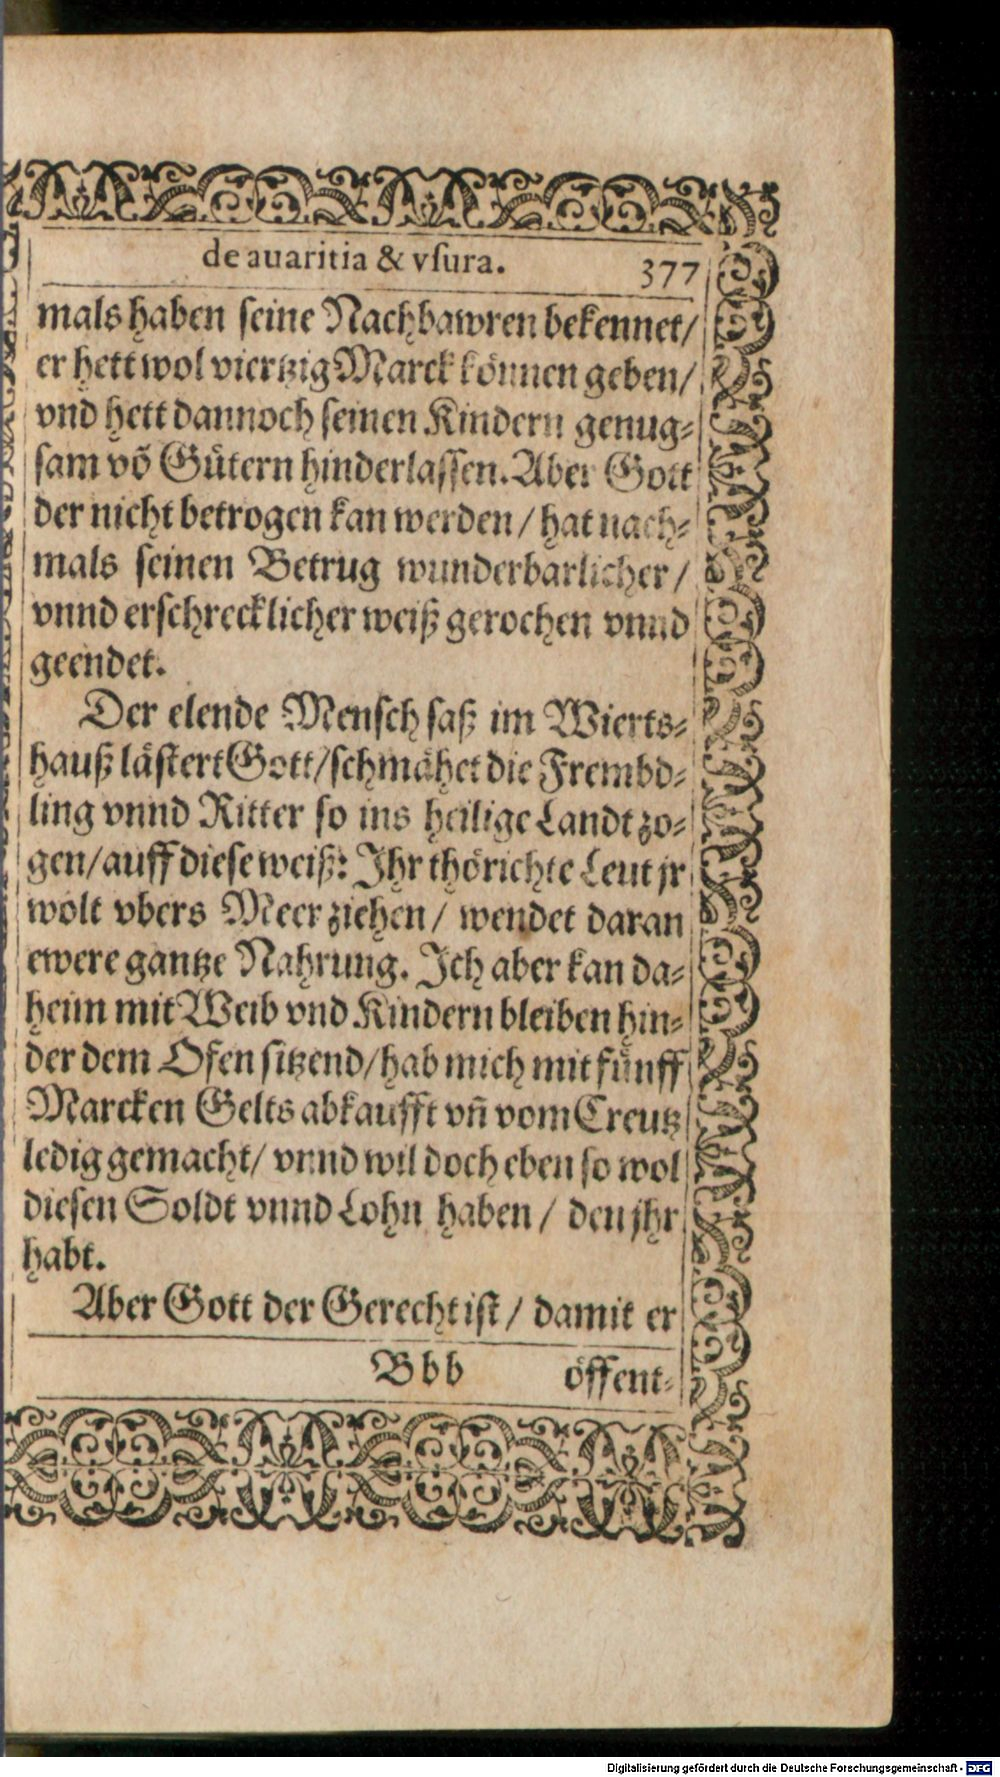 de auaritia & vſura. 377
mals haben ſeine Nachbawren bekennet/
er hett wol viertzig Marck können geben/
vnd hett dannoch ſeinen Kindern genug⸗
ſam võ Gütern hinderlaſſen. Aber Gott
der nicht betrogen kan werden / hat nach⸗
mals ſeinen Betrug wunderbarlicher /
vnnd erſchrecklicher weiß gerochen vnnd
geendet.
Der elende Menſch ſaß im Wierts⸗
hauß läſtert Gott/ ſchmähet die Frembd⸗
ling vnnd Ritter ſo ins heilige Landt zo⸗
gen/ auff dieſe weiß: Ihr thörichte Leut jr
wolt vbers Meer ziehen / wendet daran
ewere gantze Nahrung. Ich aber kan da⸗
heim mit Weib vnd Kindern bleiben hin⸗
der dem Ofen ſitzend/ hab mich mit fünff
Marcken Gelts abkaufft vñ vom Creutz
ledig gemacht/ vnnd wil doch eben ſo wol
dieſen Soldt vnnd Lohn haben / den jhr
habt.
Aber Gott der Gerecht iſt / damit er
Bbb öffent⸗
Digitalisierung gefördert durch die Deutsche Forschungsgemeinschaft - DFG